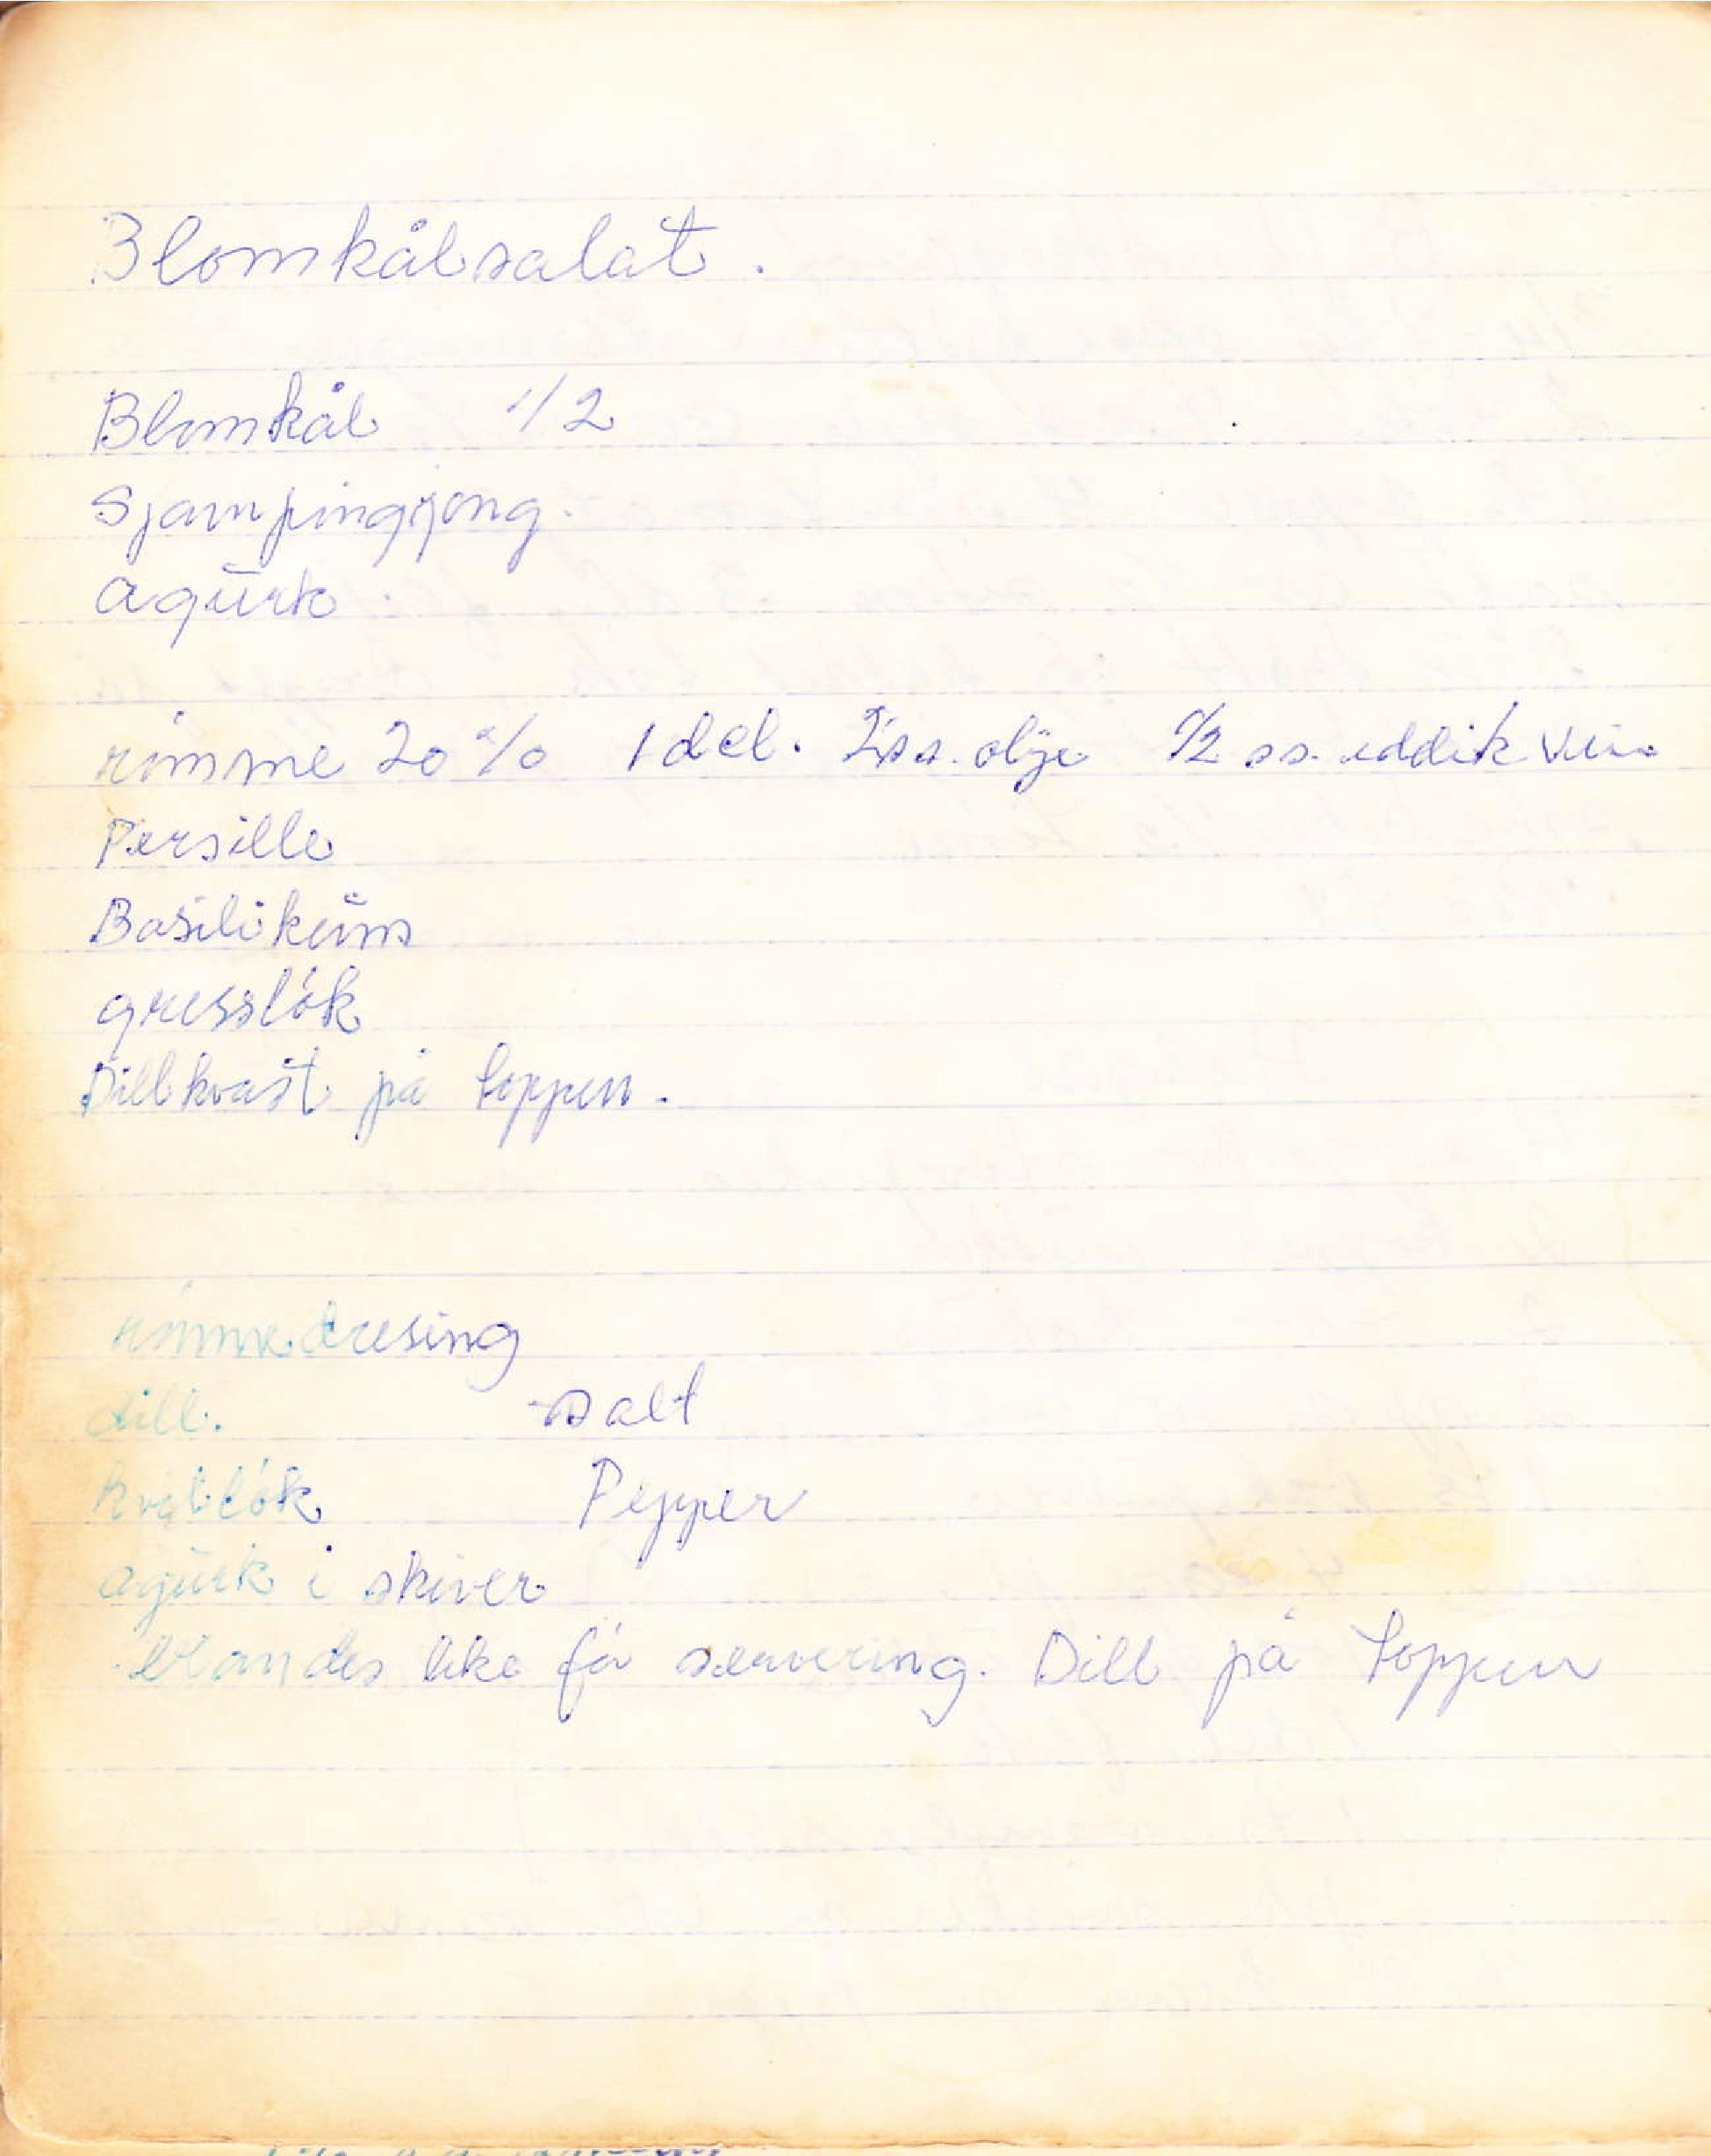 Blomkålsalat.
Blomkål 1/2
Sjampinggjong.
agurk.
rømme 20% 1 del. 2 ss. olje 1/2 ss. eddik vin
Persille
Basilikum
gressløk
Dillkvast på toppen.
rømmedresing
dill. salt
hvitløk Pepper
agurk i skiver
blandes like før servering. Dill på toppen